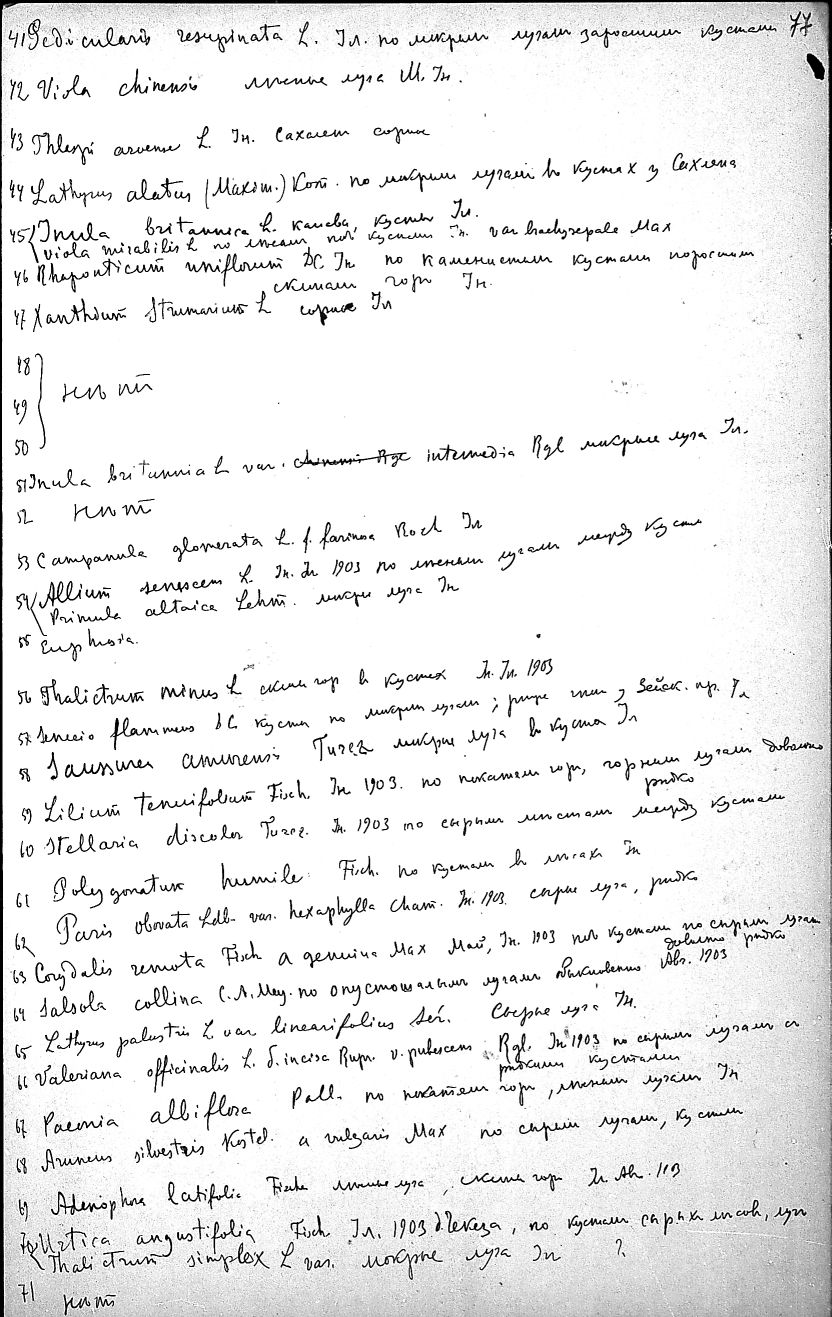 77
41 Pedicularis resupinata L. Іл. по мокрым лугам заросшим кустами
42 Viola chinensis лесные луга М. Ін.
43 Thlaspi arvense L. Ін. Сахалеш сорное
44 Lathyrus alatus (Maxim.) Kom. по мокрым лугам въ кустах у
45 Inula britannica L. кусты Іл.
Viola mirabilis L по лесам, кустам Ін. var brachysepala Max
46 Rhaponticum uniflorum DC Ін по каменистым кустами поросшим
склонам гор Ін.
47 Xanthium Strumarium L сорное Іл
48
49 } нѣт
50
51 Inula britannica L var. chinensis Rgl intermedia Rgl мокрые луга Іл.
52 нѣт
53 Campanula glomerata L. f. farinosa Roch Іл
54 Allium senescens L. Ін. Іл 1903 по лесным лугам между кусты
Primula altaica Lehm. мокрые луга Ін
55 Euphrasia.
56 Thalictrum minus L склоны гор в кустах Ін. Іл. 1903
57 Senecio flammeus DC кусты по мокрым лугам; Зейск. пр.
58 Saussurea amurensis Turcz мокрые луга въ кустах Іл
59 Lilium tenuifolium Fisch. Ін 1903. по покатям гор, горным лугам довольно
рѣдко
60 Stellaria discolor Turcz. Ін. 1903 по сырым мѣстам между кустами
61 Polygonatum humile Fisch. по кустам въ лѣсах Ін
62 Paris obovata Ldb. var. hexaphylla Cham. Ін. 1903. сырые луга, рѣдко
63 Corydalis remota Fisch α genuina Max Май, Ін. 1903 кустами по сырым лугам
довольно рѣдко
64 Salsola collina C.A.Mey. по опустошалым лугам обыкновенно Авг. 1903
65 Lathyrus palustris L var linearifolius Ser. Сырые луга Ін.
66 Valeriana officinalis L. δ. incisa Rupr. v. pubescens Rgl. Ін 1903 по сырым лугам съ
рѣдкими кустами
67 Paeonia albiflora Pall. по покатям гор, лѣсным лугам Ін
68 Aruncus silvestris Kostel. α vulgaris Max по сырым лугам, кустам
69 Adenophora latifolia Fisch лѣсные луга, склоны гор Іл Авг. 1903
70 Urtica angustifolia Fisch Іл. 1903 по кустам сырых лѣсов, луга
Thalictrum simplex L var. мокрые луга Іл ?
71 нѣт